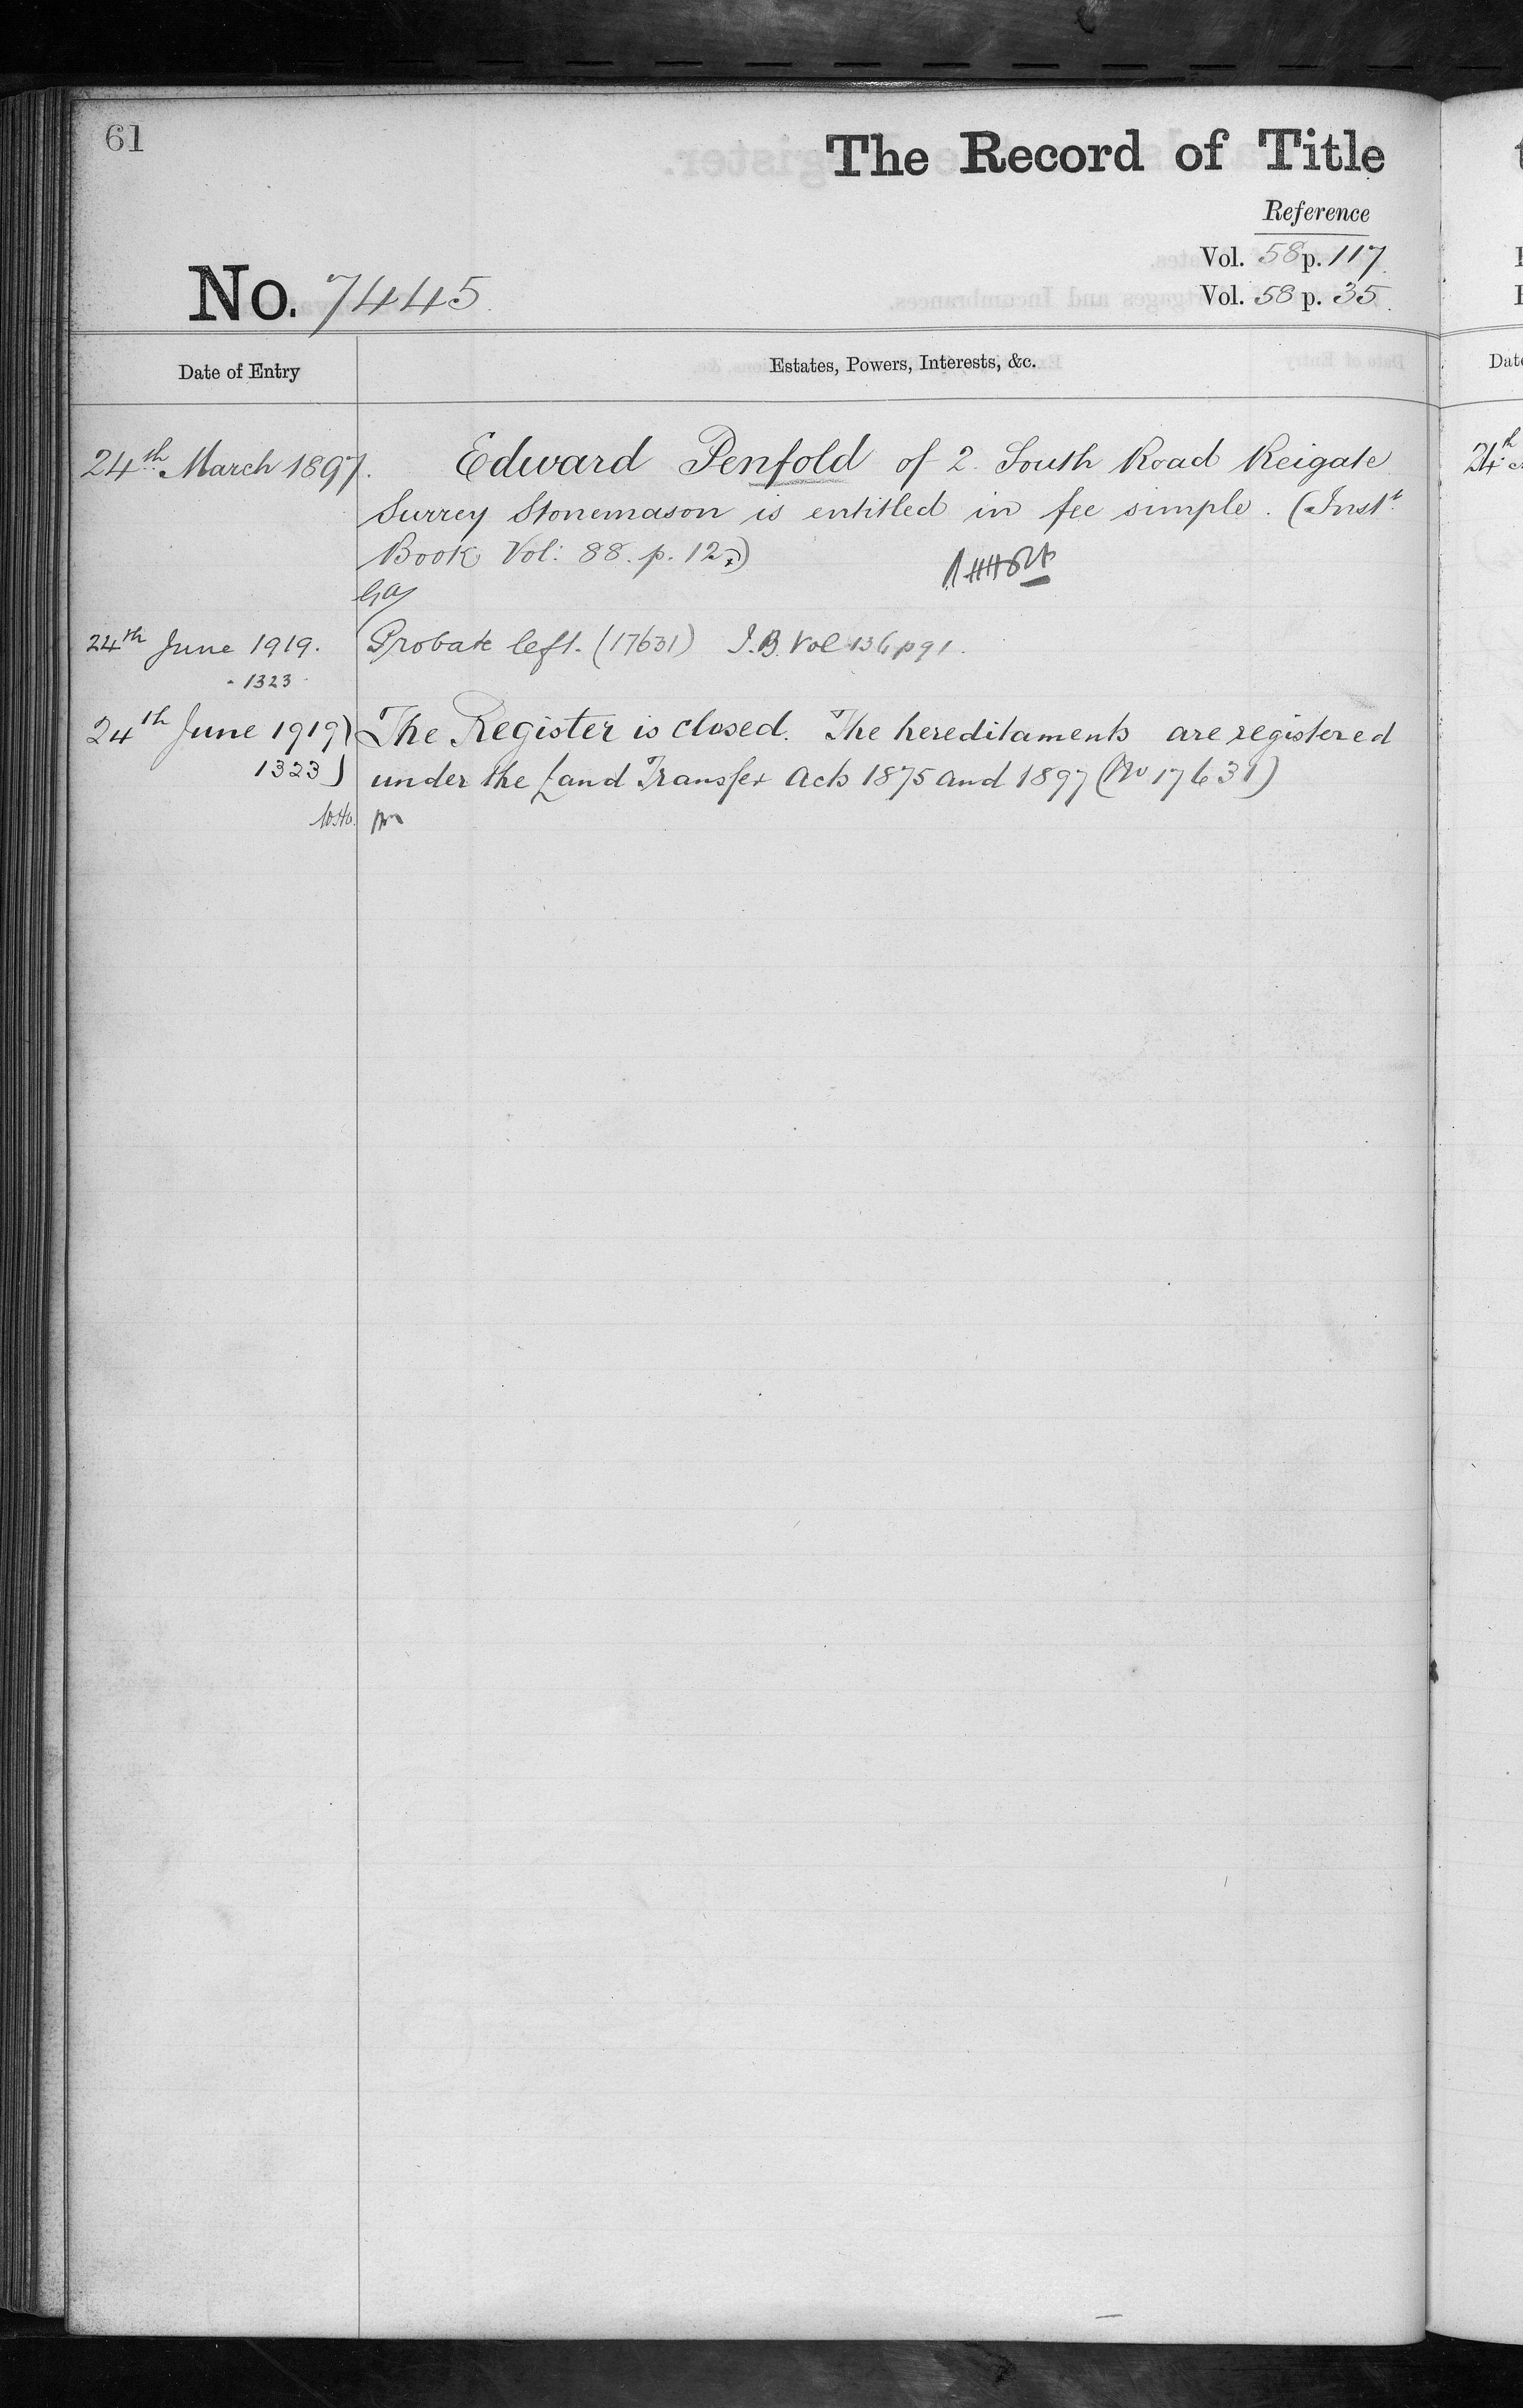 61
The Record of Title
Reference
Vol. 58 p. 117
Vol. 58 p. 35
No. 7445
Date of Entry
Estates, Powers, Interests, &c.
24th March 1897.
Edward Penfold of 2. South Road Reigate
Surrey Stonemason is entitled in fee simple. (Inst.t
Book Vol: 88. p. 12.)
24th June 1919.
Probate left. (17631) I.B. Vol 136 p 91.
1323
24th June 1919)
The Register is closed. The hereditaments are registered
1323)
under the Land Transfer Acts 1875 and 1897 (No 17631)
Date
24th